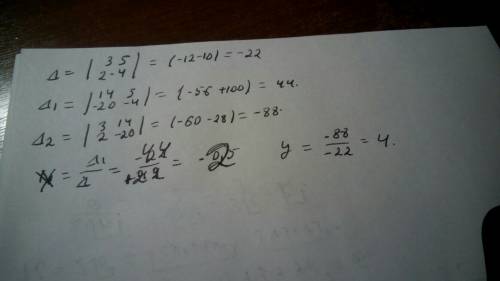 Δ = | 3 5 2 -4 | = (-12-10) = -22
Δ1 = | 14 5 -20 -4 | = (-56 +100) = 44.
Δ2 = | 3 14 2 -20 | = (-60 -28) = -88.
= Δ1/Δ = = 2 y = -88/-22 = 4.